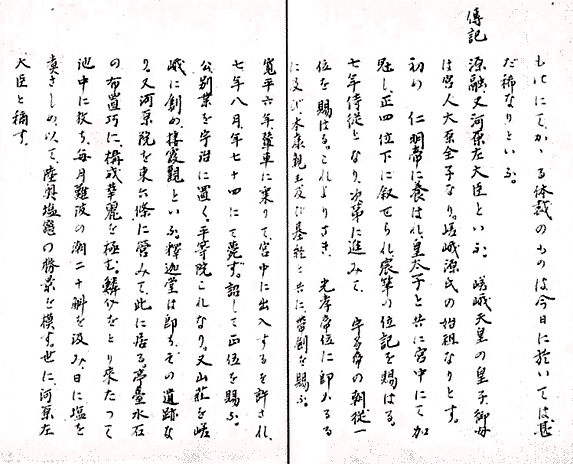 もにてかゝる体裁のものは今日に於いては甚
だ稀なりといふ。
傳記
源融又河原左大臣といふ。嵯峨天皇の皇子御母
は宮人大原全子なり。嵯峨源氏の始祖なりとす。
初め 仁明帝に養はれ、皇太子と共に宮中にて加
冠し、正四位下に叙せられ、宸筆の位記を賜はる。
七年侍従となり、次第に進みて 宇多帝の朝従一
位を賜はる。これよりさき、光孝帝位に即かるる
に及び本康親王及び基経と共に帯劔を賜ふ。
寛平六年輦車に乗りて、宮中に出入するを許され、
七年八月、年七十四にて薨ず。詔して正位を賜ふ。
公別業を宇治に置く。平等院これなり。又山荘を嵯
峨に創め、棲霞観といふ。釋迦堂は即ちその遺跡な
り。又河原院を東六條に営みて、此に居る。亭臺水石
の布置巧に、構成華麗を極む。鱗介をとり来たつて
池中に放ち、毎月難波の潮二十斛を汲み、日に塩を
煮きしめ、以て、陸奥塩竈の勝景を模す。世に、河原左
大臣と稱す。